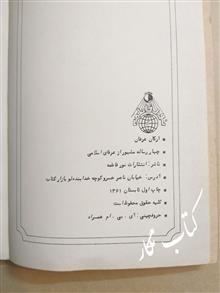 ارکان عرفان
چهار رساله مشهور از عرفای اسلامی
ناشر: انتشارات نور فاطمه
آدرس: خیابان ناصر خسرو کوچه خدابنده‌لو بازار کتاب
چاپ اول تابستان ۱۳۶۱
کلیه حقوق محفوظ است
حروفچینی: آی . بی . ام همراه
کتاب مهار